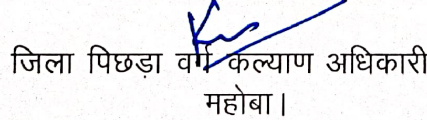 जिला पिछड़ा वर्ग कल्याण अधिकारी
महोबा।